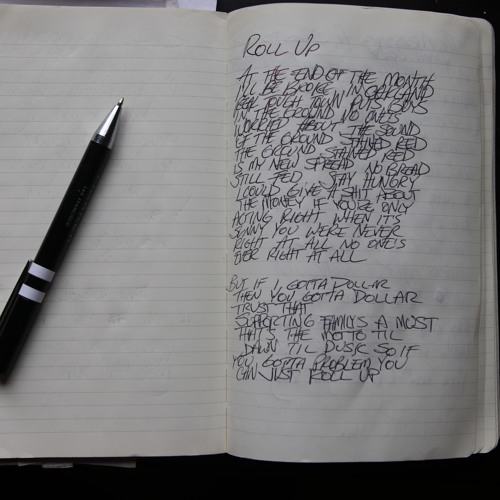 ROLL UP
AT THE END OF THE MONTH
I'LL BE BROKE IN OAKLAND
REAL TOUGH TOWN PUTS GUNS
IN THE GROUND NO ONE'S
WORRIED ABOUT THE SOUND
OF THE GROUND STAINED RED
THE GROUND STAINED RED
IS MY NEW SPREAD NO BREAD
STILL FED STAY HUNGRY
I COULD GIVE A SHIT ABOUT
THE MONEY IF YOU'RE ONLY
ACTING RIGHT WHEN IT'S
SUNNY YOU WERE NEVER
RIGHT AT ALL NO ONE'S
EVER RIGHT AT ALL
BUT IF I GOTTA DOLLAR
THEN YOU GOTTA DOLLAR
TRUST THAT
SUPPORTING FAMILYS A MUST
THAT'S THE MOTTO TIL
DAWN TIL DUSK SO IF
YOU GOTTA PROBLEM YOU
CAN JUST ROLL UP